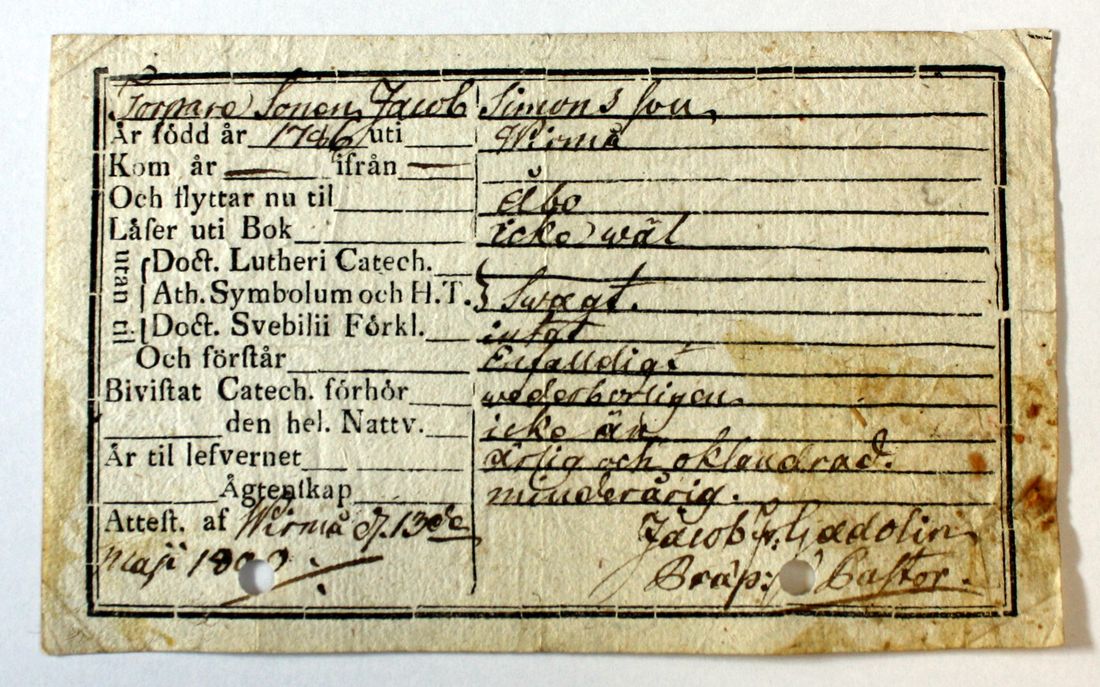 Torpare Sonen Jacob Simons son
Är född år 1786 uti Wirmå
Kom år — ifrån —
Och flyttar nu til Åbo
Låser uti Bok icke wäl
utan til { Doct. Lutheri Catech.
Ath. Symbolum och H. T. } Swagt.
Doct. Svebilii Förkl. intet
Och förstår Enfalldigt
Bivistat Catech. förhör wederborligen
den hel. Nattv. icke än
Är til lefvernet ärlig och oklandrad.
Ägtenskap minderårig.
Attest. af Wirmå d. 13de Jacob Gadolin
Maji 1800 Prap: Pastor.